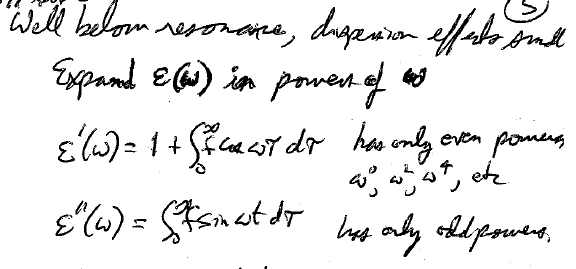 5
Well below resonance, dispersion effects small
Expand ε(ω) in powers of ω
ε'(ω) = 1 + ∫₀^∞ f cos ωτ dτ has only even powers
ω⁰, ω², ω⁴, etc
ε''(ω) = ∫₀^∞ f sin ωt dτ has only odd powers.